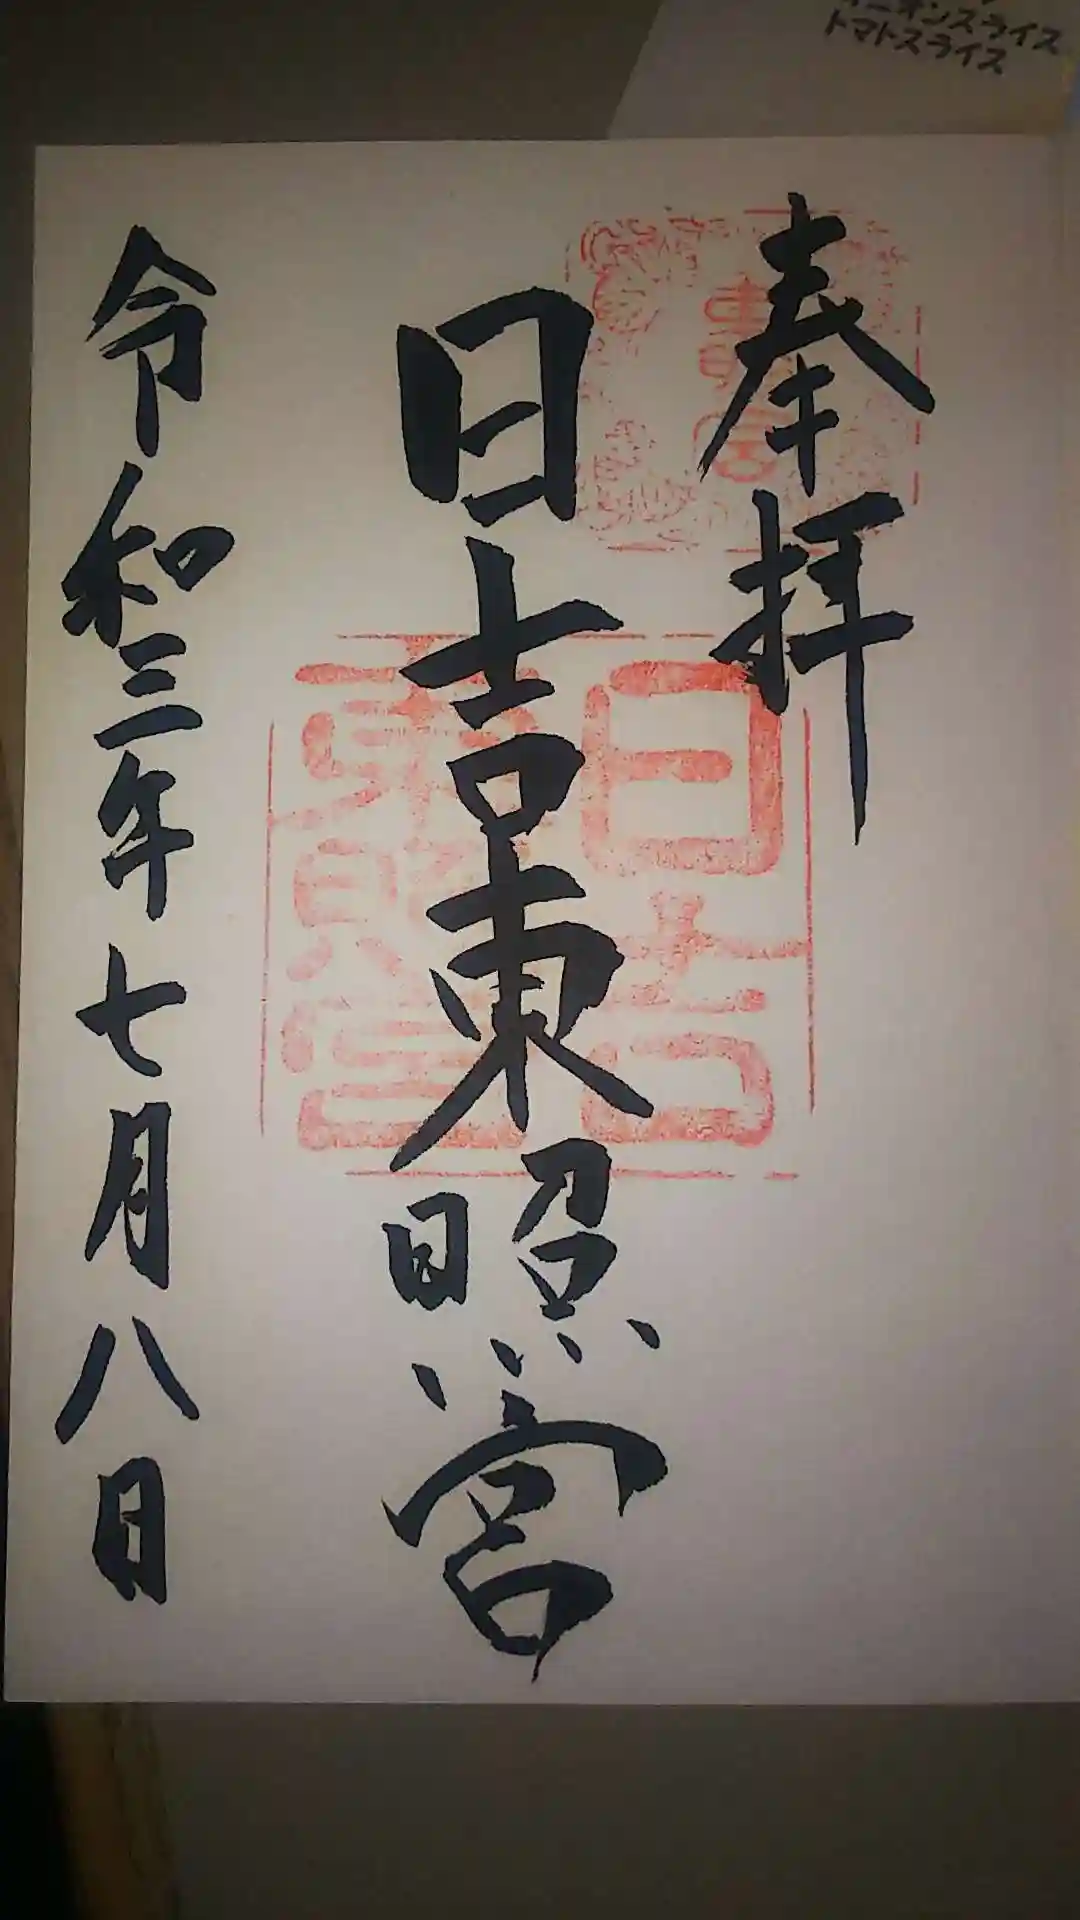 オニオンスライス
トマトスライス
奉拝
東照宮
日吉東照宮
日吉
東照宮
令和三年七月八日